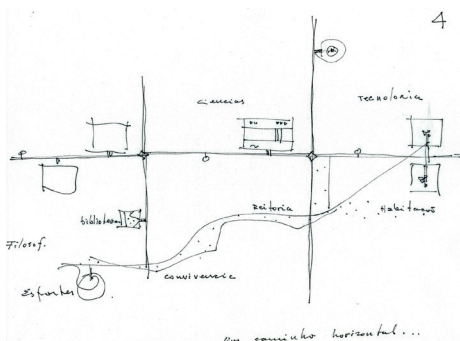 4
ciencias
Tecnologia
biblioteca
Reitoria
Habitação
Filosof.
convivencia
Esportes
Um caminho horizontal...